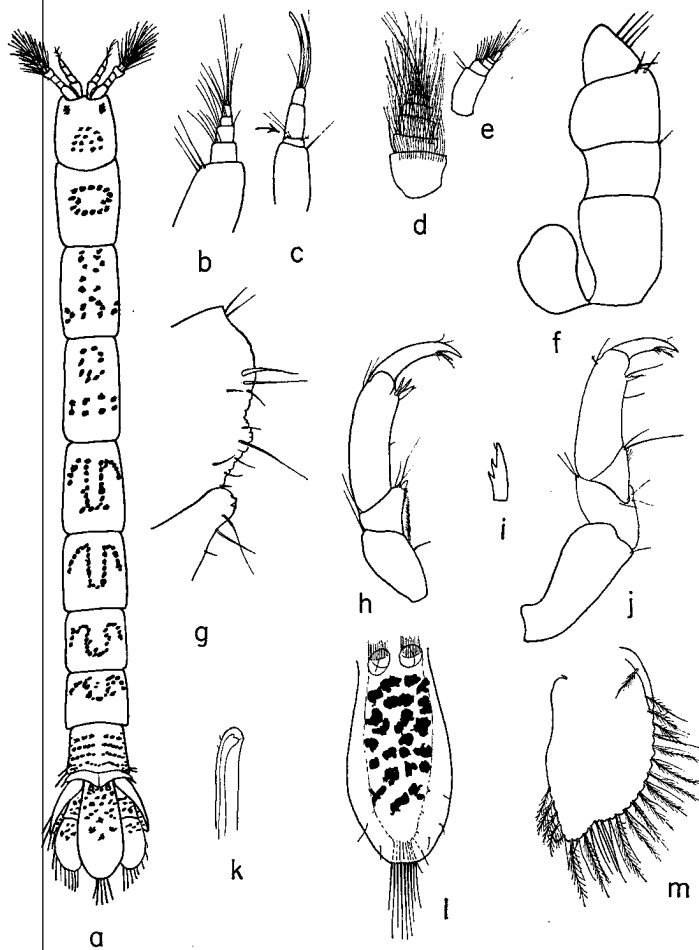 b
c
d
e
f
g
h
i
j
k
l
m
a